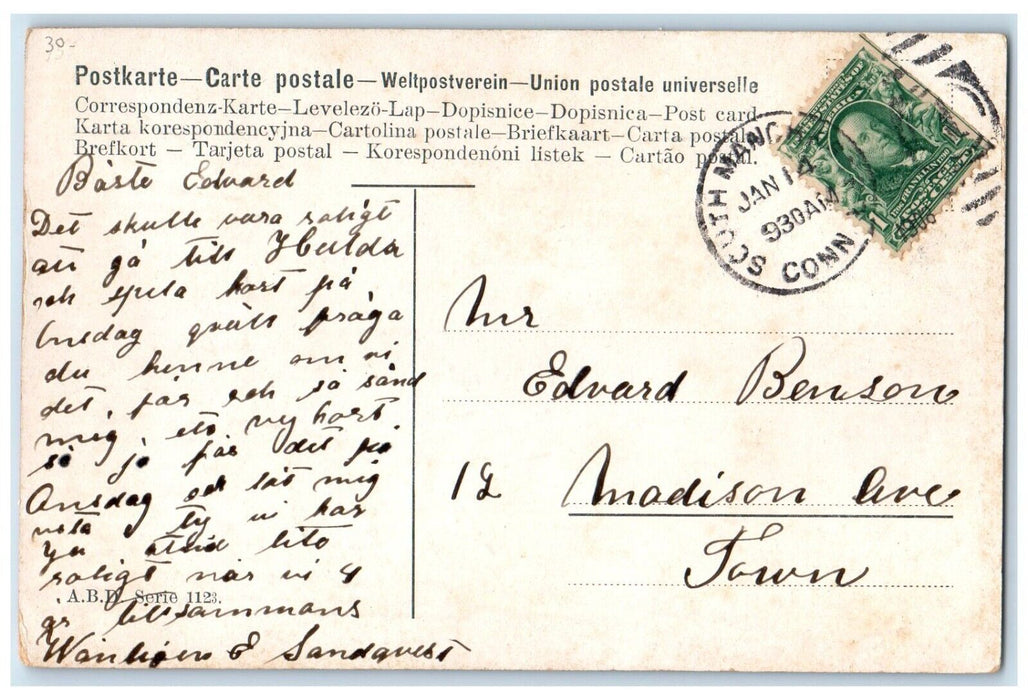 39-
Postkarte—Carte postale—Weltpostverein—Union postale universelle
Correspondenz-Karte—Levelező-Lap—Dopisnice—Dopisnica—Post card
Karta korespondencyjna—Cartolina postale—Briefkaart—Carta postale
Brefkort — Tarjeta postal — Korespondenčni listek — Cartão postal.
Bäste Edvard
Det skulle vara roligt
att gå till Hulda
och spela kort på
Onsdag qväll fråga
du henne om vi
det, får och så sänd
mig, ett vy kort
så jo får det på
Onsdag och låt mig
veta ty vi har
Ju altid lite
roligt när vi 4
är tillsammans
Wänligen E Sandqvest
A.B.D. Serie 1123.
SOUTH MANCHESTER
JAN 14
930AM
CONN
FRANKLIN
1
Mr
Edvard Benson
12 Madison Ave
Town